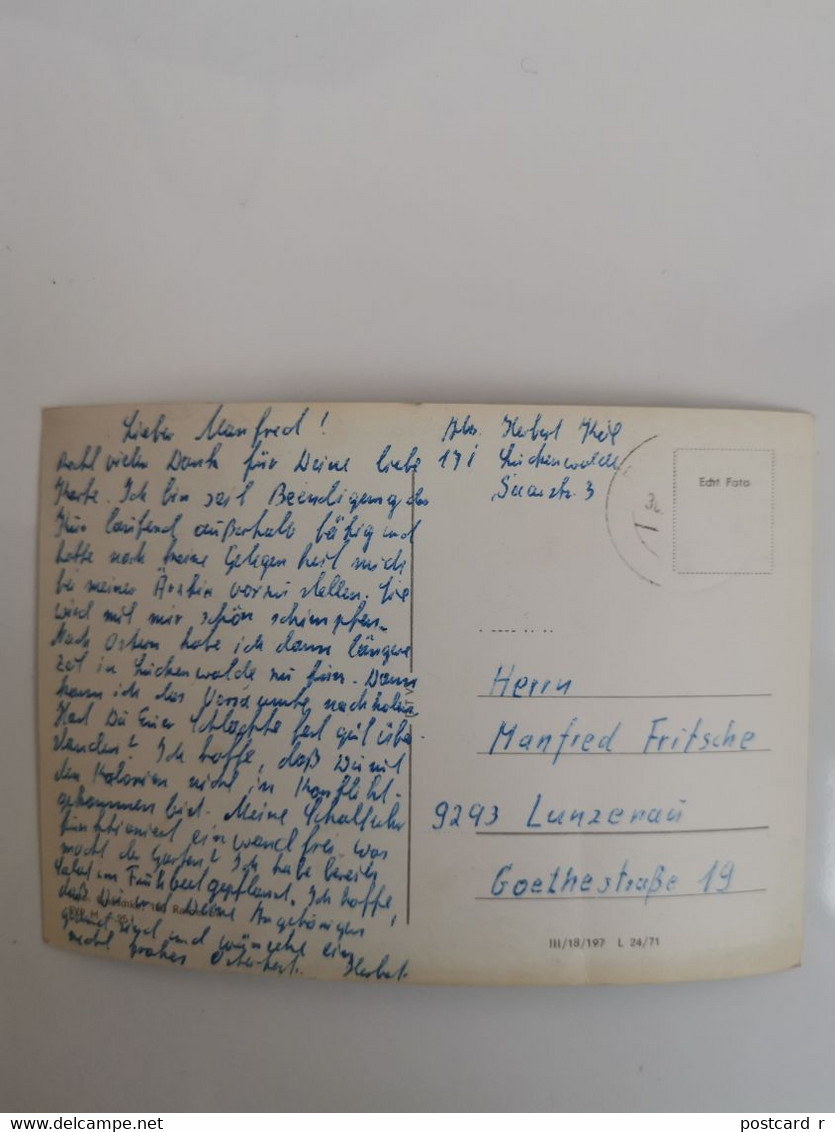 Lieber Manfred!
Recht vielen Dank für Deine liebe
Karte. Ich bin seit Beendigung der
Kur laufend außerhalb tätig und
hatte noch keine Gelegenheit mich
bei meiner Ärztin vorzustellen. Sie
wird mit mir schön schimpfen.
Nach Ostern habe ich dann längere
Zeit in Luckenwalde zu tun. Dann
kann ich das Versäumte nachholen.
Hast Du Euer Schlachtefest gut über-
standen? Ich hoffe, daß Du mit
den Kalorien nicht in Konflikt
gekommen bist. Meine Schaltuhr
funktioniert einwandfrei. Was
macht der Garten? Ich habe bereits
Salat im Frühbeet gepflanzt. Ich hoffe,
daß Du und Deine Angehörigen
gesund seid und wünsche ein
recht frohes Osterfest. Herbert
Abs. Herbert
171 Luckenwalde
3
Echt Foto
Herrn
Manfred Fritsche
9293 Lunzenau
Goethestraße 19
III/18/197 L 24/71
delcampe.net
postcard_r